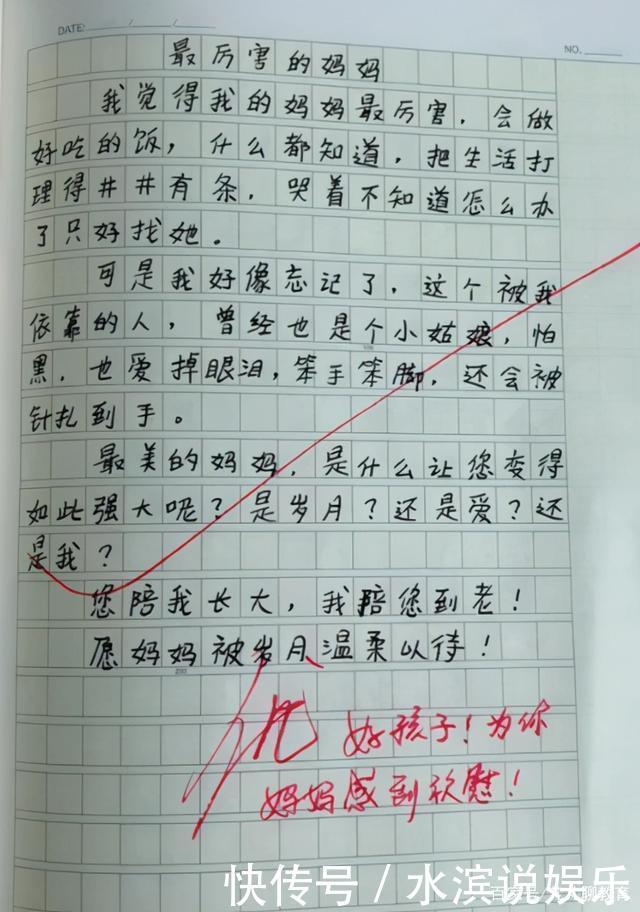 DATE: / /
NO.
最厉害的妈妈
我觉得我的妈妈最厉害，会做
好吃的饭，什么都知道，把生活打
理得井井有条，哭着不知道怎么办
了只好找她。
可是我好像忘记了，这个被我
依靠的人，曾经也是个小姑娘，怕
黑，也爱掉眼泪，笨手笨脚，还会被
针扎到手。
最美的妈妈，是什么让您变得
如此强大呢？是岁月？还是爱？还
是我？
您陪我长大，我陪您到老！
愿妈妈被岁月温柔以待！
优
好孩子！为你
妈妈感到欣慰！
快传号 / 水滨说娱乐